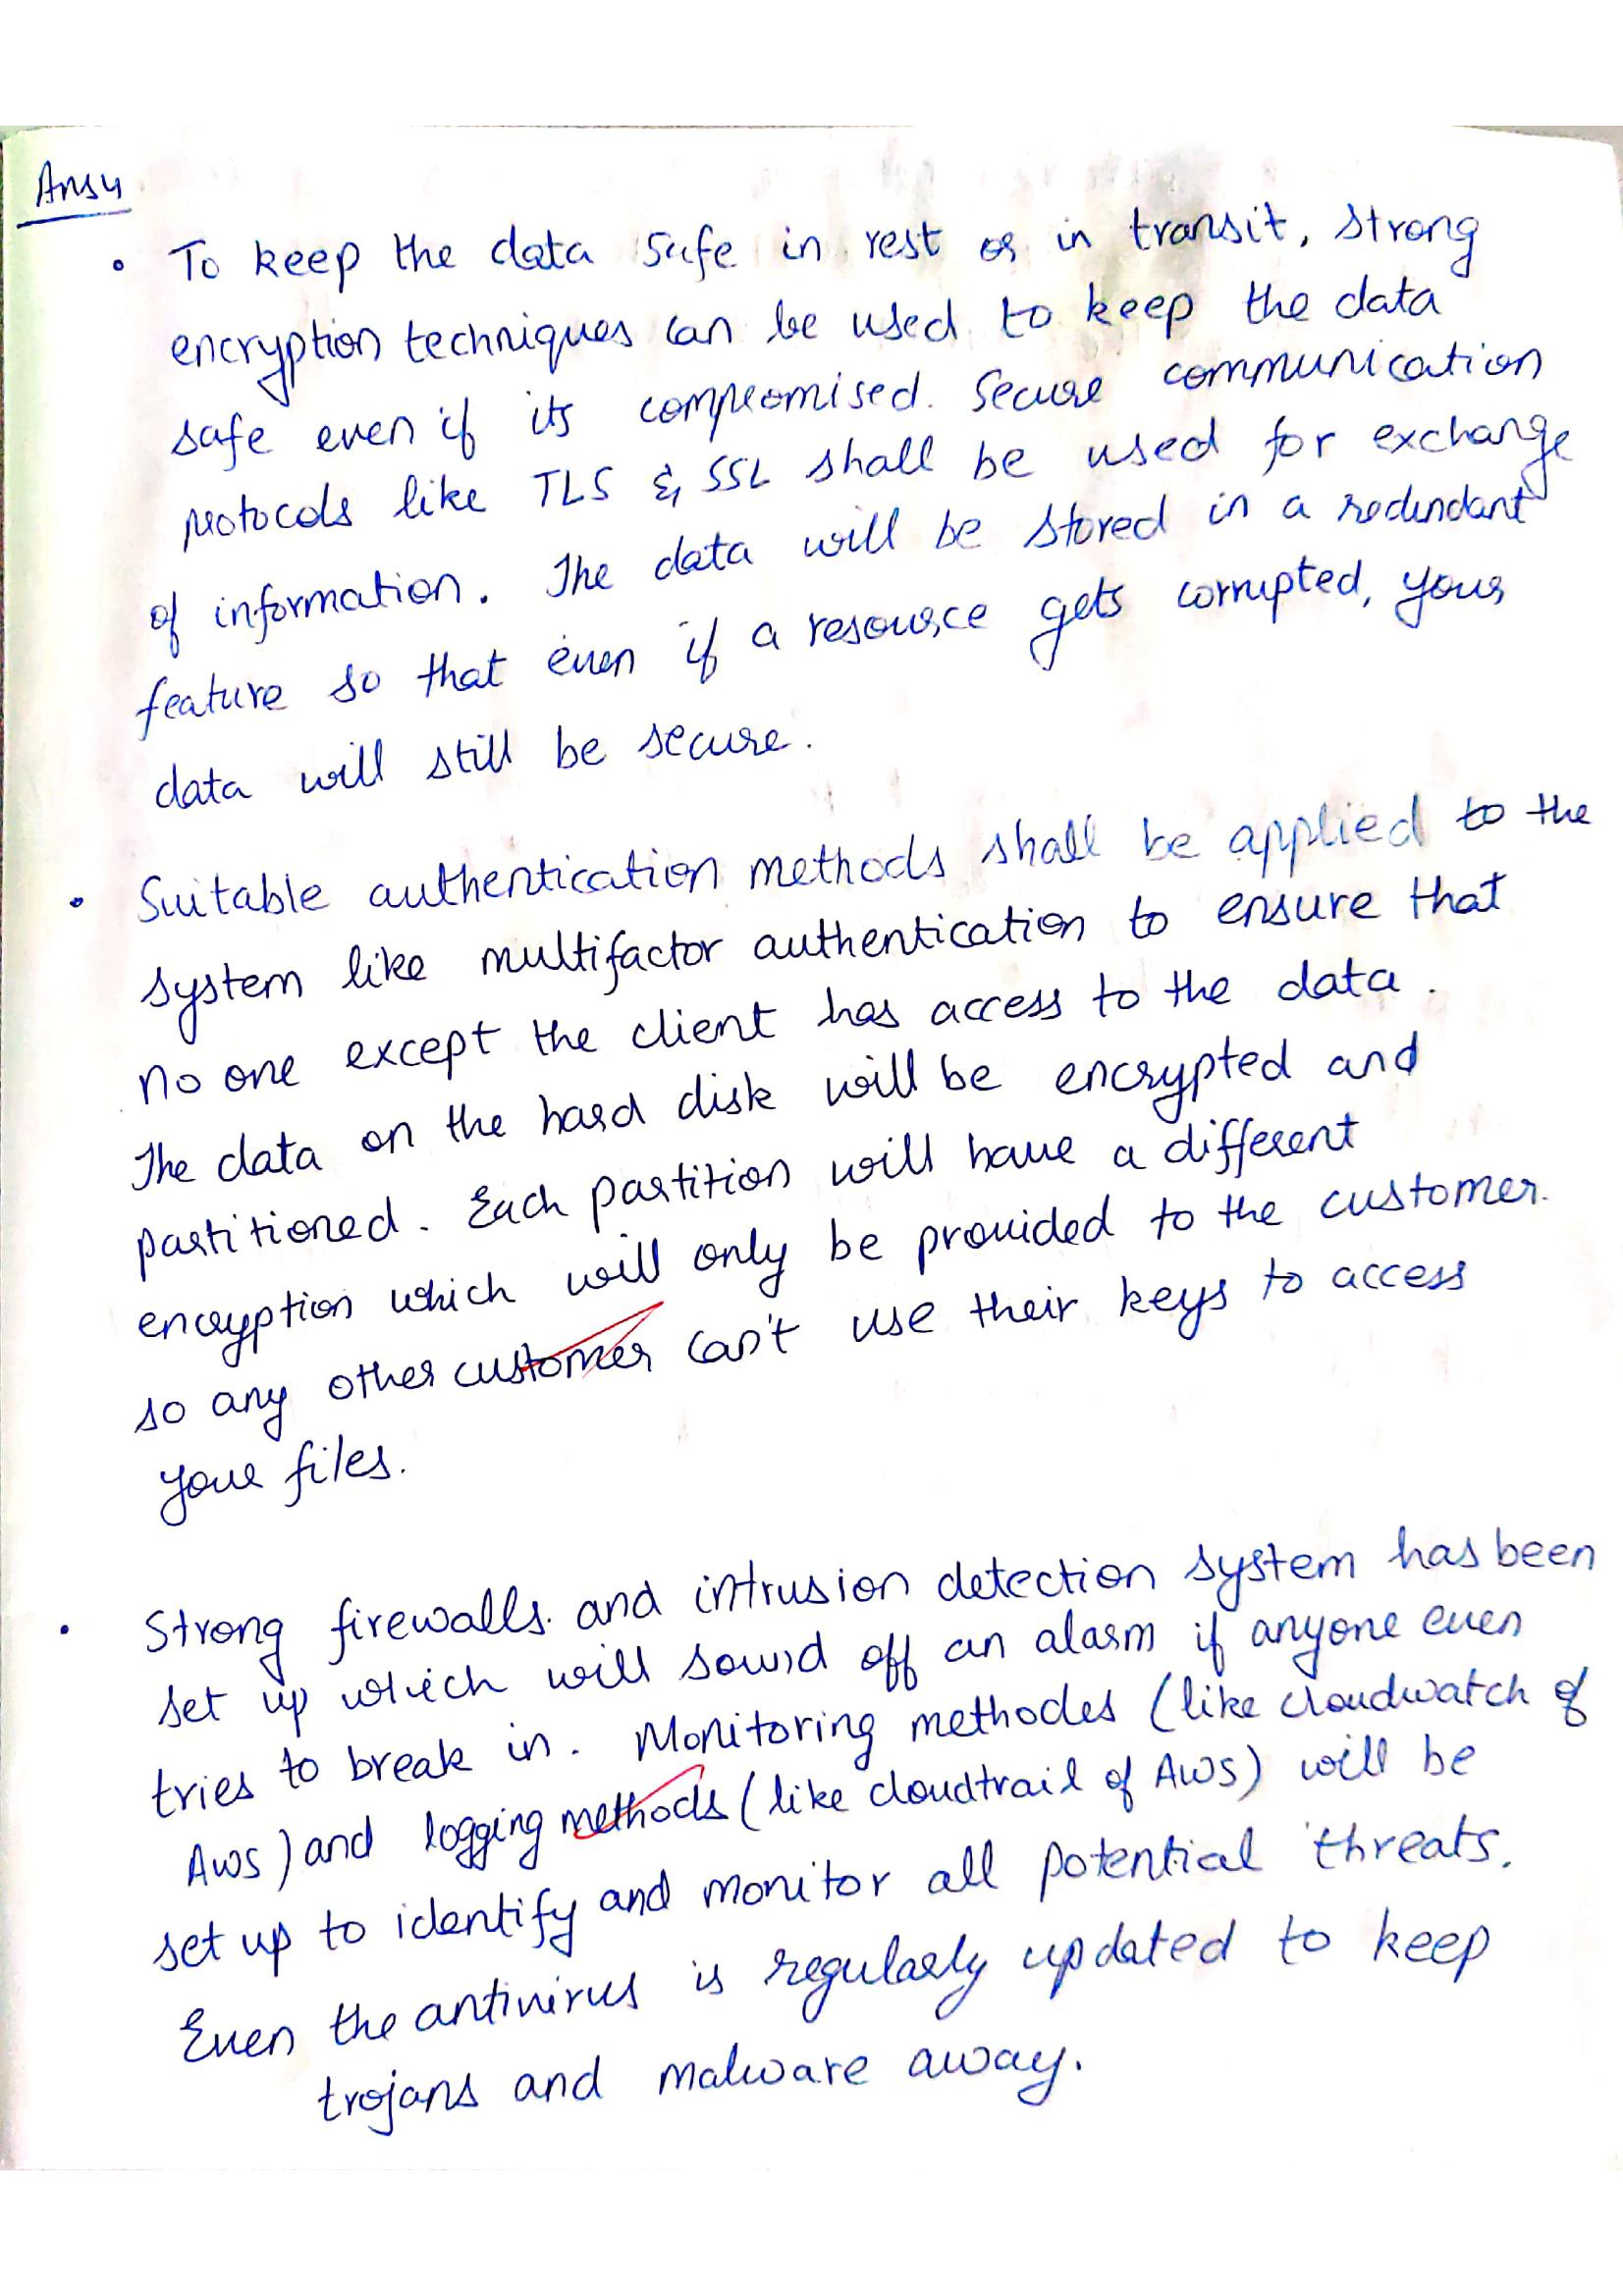 Ans4
• To keep the data safe in rest or in transit, strong
encryption techniques can be used to keep the data
safe even if its compromised. Secure communication
protocols like TLS & SSL shall be used for exchange
of information. The data will be stored in a redundant
feature so that even if a resource gets corrupted, your
data will still be secure.
• Suitable authentication methods shall be applied to the
system like multifactor authentication to ensure that
no one except the client has access to the data.
The data on the hard disk will be encrypted and
partitioned. Each partition will have a different
encryption which will only be provided to the customer.
so any other customer can't use their keys to access
your files.
• Strong firewalls. and intrusion detection system has been
set up which will sound off an alarm if anyone even
tries to break in. Monitoring methodes (like cloudwatch of
Aws) and logging methods (like cloudtrail of AWS) will be
set up to identify and monitor all potential threats.
Even the antivirus is regularly updated to keep
trojans and malware away.